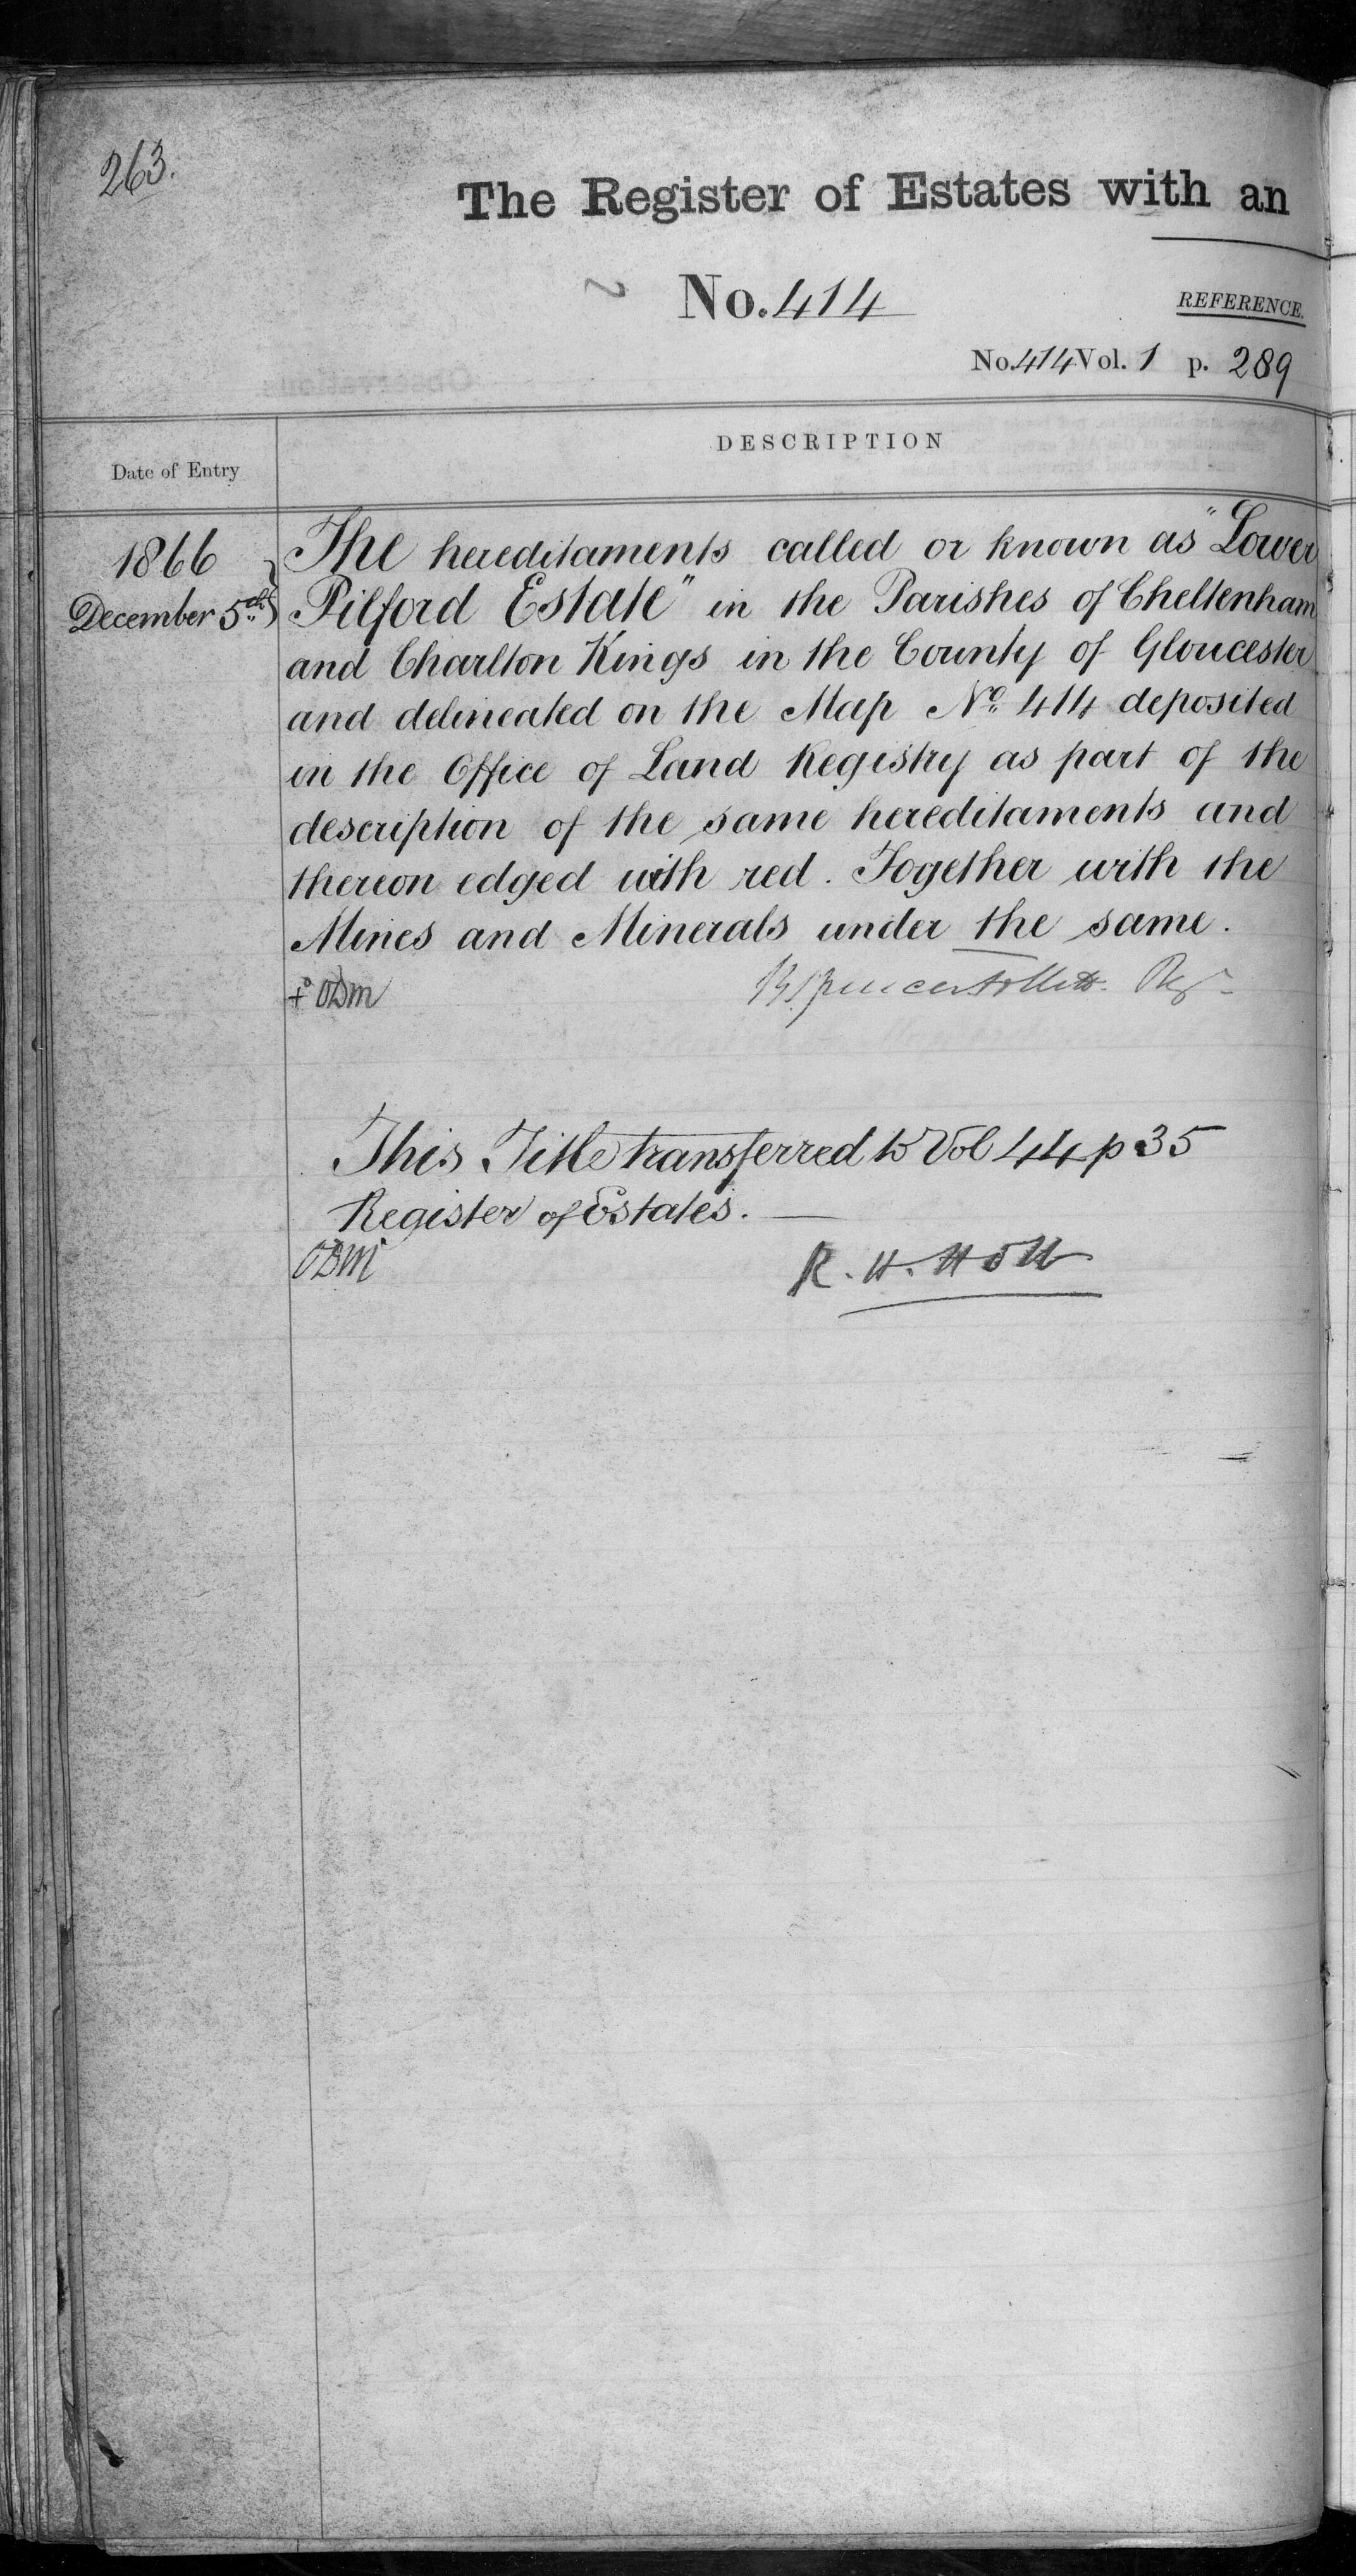 263.
The Register of Estates with an
No. 414
REFERENCE.
No. 414 Vol. 1 p. 289
Date of Entry
DESCRIPTION
1866
December 5th
The hereditaments called or known as "Lower
Pilford Estate" in the Parishes of Cheltenham
and Charlton Kings in the County of Gloucester
and delineated on the Map No. 414 deposited
in the Office of Land Registry as part of the
description of the same hereditaments and
thereon edged with red. Together with the
Mines and Minerals under the same.
B Spencer Follett. Regr
This Title transferred to Vol 44 p 35
Register of Estates.
R. H. Holt